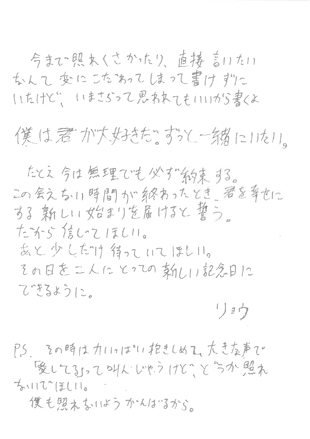 今まで照れくさかったり、直接言いたい
なんて変にこだわってしまって書けずに
いたけど、いまさらって思われてもいいから書くよ
僕は君が大好きだ。ずっと一緒にいたい。
たとえ今は無理でも必ず約束する。
この会えない時間が終わったとき、君を幸せに
する新しい始まりを届けると誓う。
だから信じてほしい。
あと少しだけ待っていてほしい。
その日を二人にとっての新しい記念日に
できるように。
リョウ
P.S. その時は力いっぱい抱きしめて、大きな声で
「愛してる」って叫んじゃうけど、どうか照れ
ないでほしい。
僕も照れないようがんばるから。